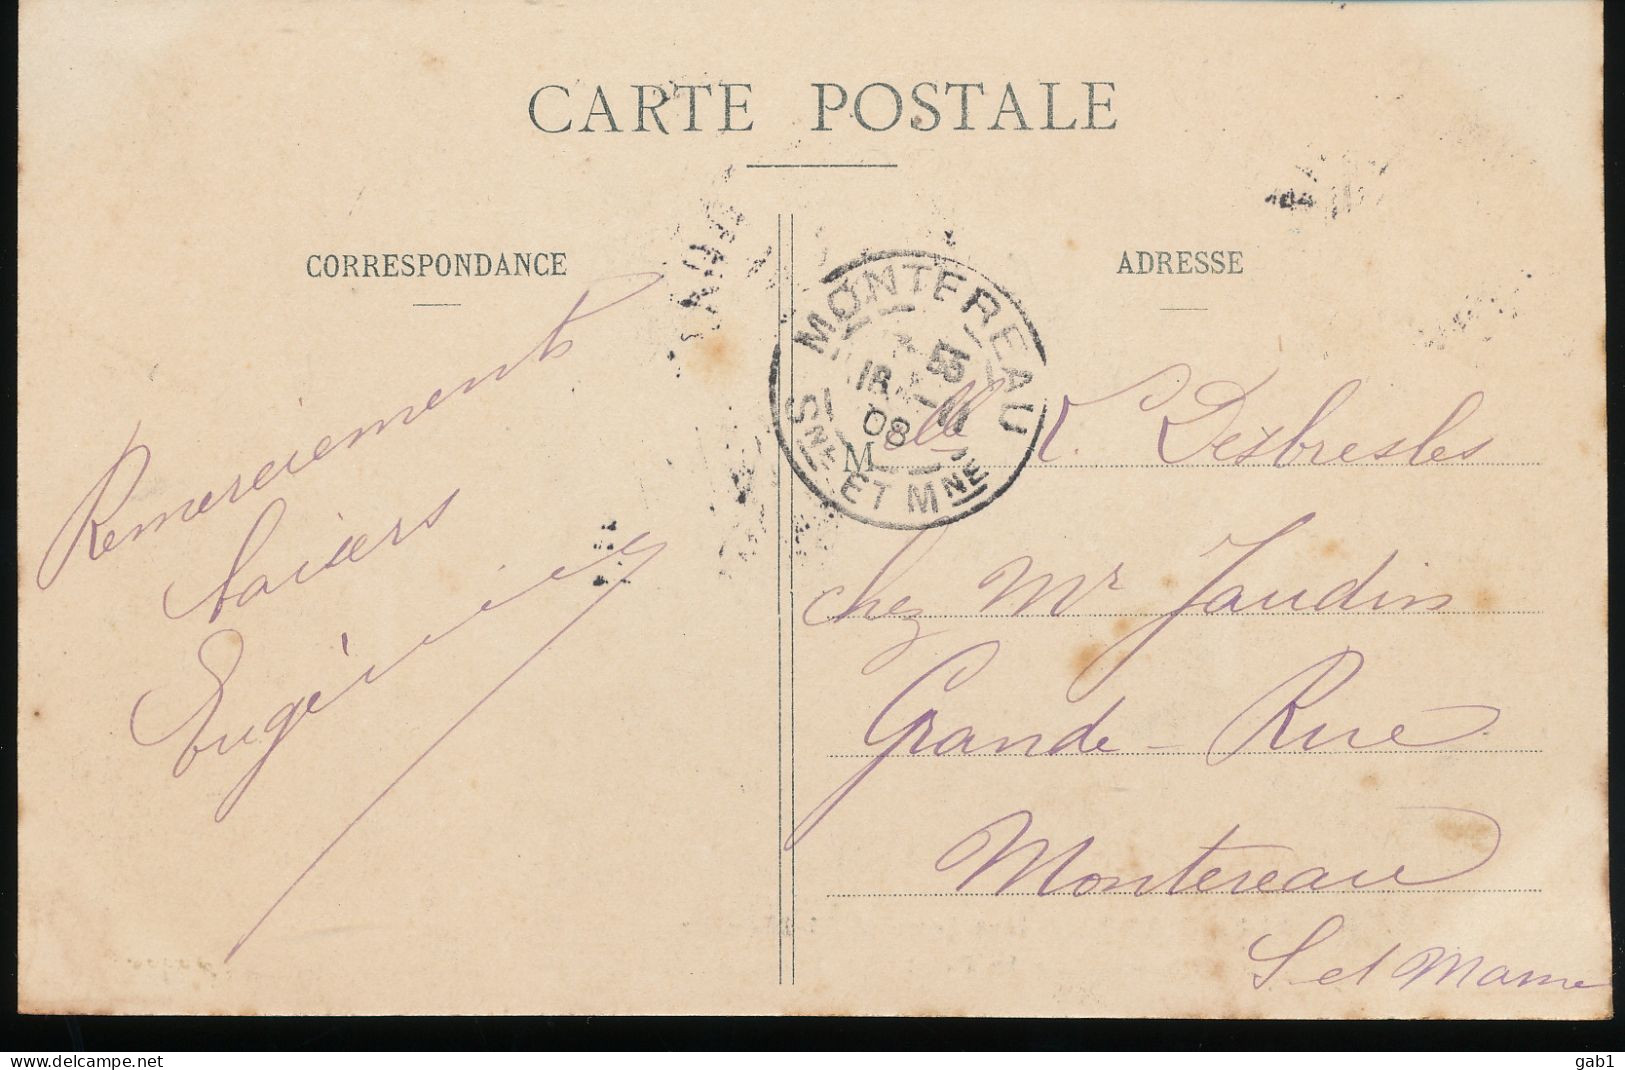 CARTE POSTALE
CORRESPONDANCE
Remerciements
baisers
Eugénie
ADRESSE
MONTEREAU
18
08
Sne ET Mne
Melle V. Desbresles
chez Mr Jaudin
Grande-Rue
Montereau
S et Marne
delcampe.net
gab1